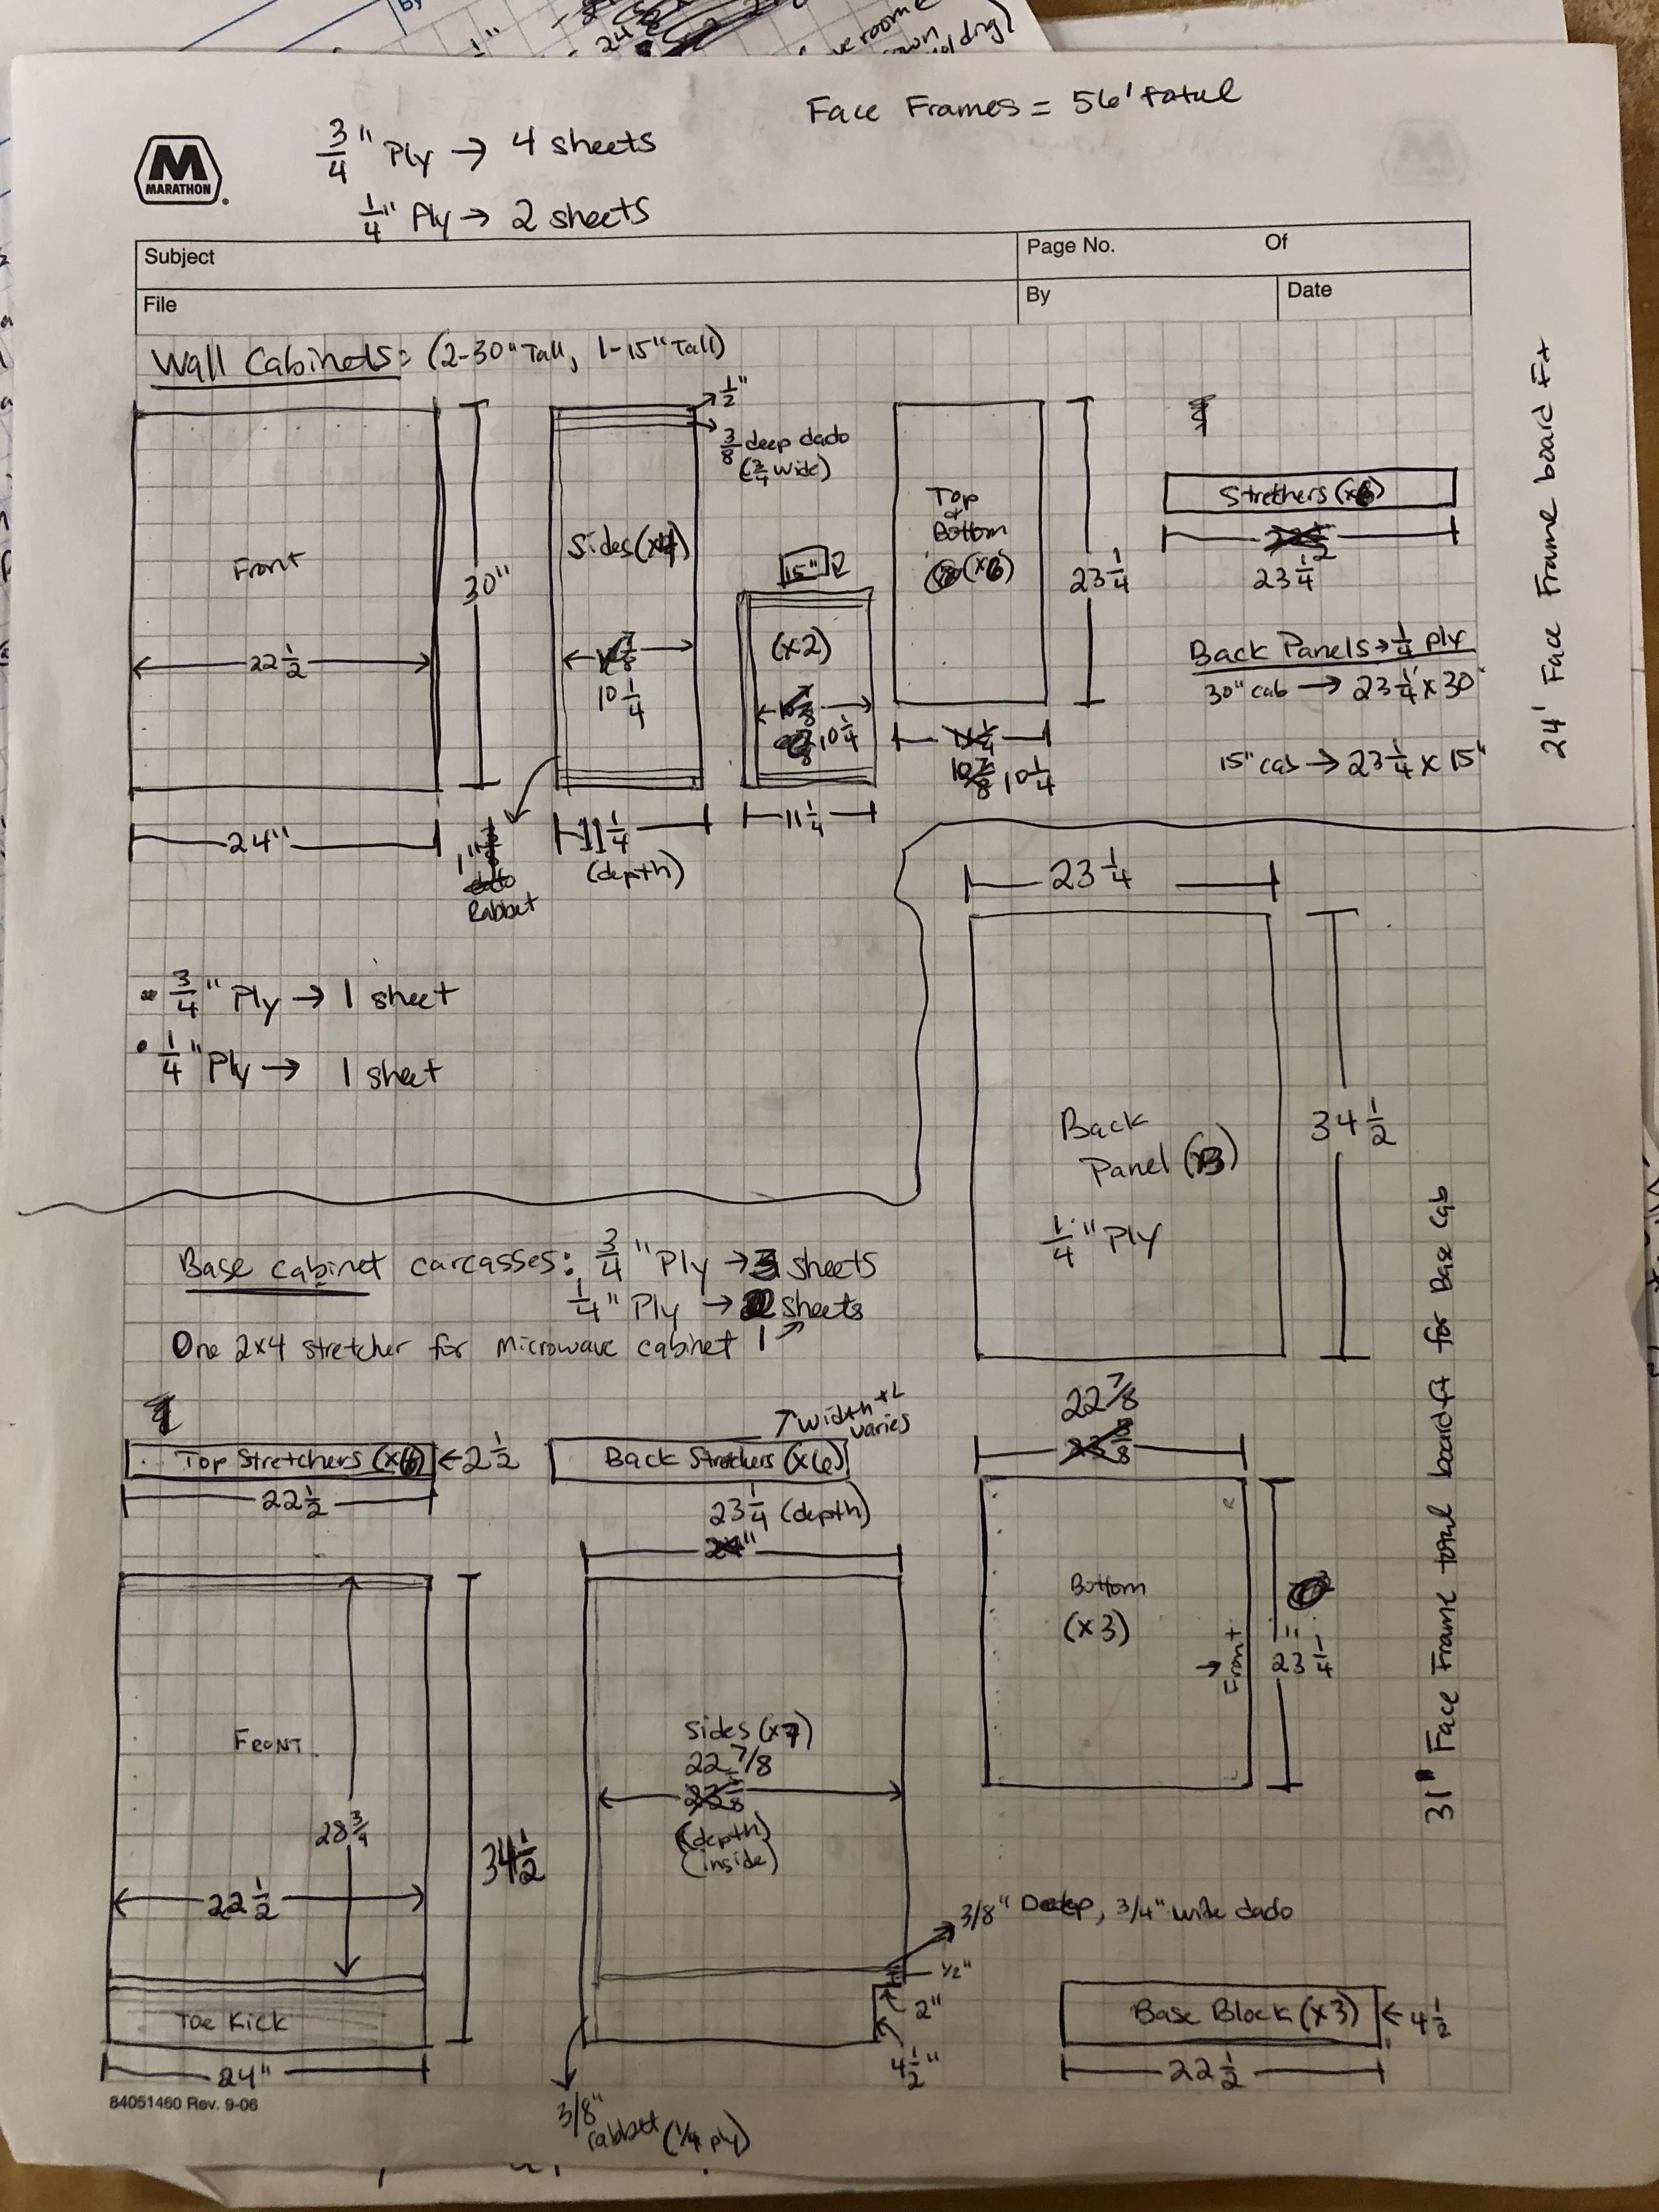 Face Frames = 56' total
3/4" Ply → 4 sheets
1/4" Ply → 2 sheets
M
MARATHON
Subject
Page No. Of
File
By
Date
Wall Cabinets: (2-30" Tall, 1-15" Tall)
Front
22 1/2
30"
24"
1/2"
3/8 deep dado
(3/4 wide)
Sides (x4)
10 1/4
11 1/4
(depth)
1"
Rabbet
15"
(x2)
10 1/4
11 1/4
Top
or
Bottom
(x6)
23 1/4
10 1/4
Stretchers (x6)
23 1/4
Back Panels → 1/4 ply
30" cab → 23 1/4 x 30"
15" cab → 23 1/4 x 15"
24' Face Frame board Ft
• 3/4" Ply → 1 sheet
• 1/4" Ply → 1 sheet
23 1/4
Back
Panel (x3)
1/4" Ply
34 1/2
Base cabinet carcasses: 3/4" Ply → 3 sheets
1/4" Ply → sheets
One 2x4 stretcher for microwave cabinet 1
Top Stretchers (x6) ← 2 1/2
22 1/2
↗ width
varies
Back Stretchers (x6)
23 1/4 (depth)
24"
22 7/8
Bottom
(x3)
→ Front
23 1/4
31" Face Frame total board ft for Base Cab
FRONT
28 3/4
22 1/2
34 1/2
Toe Kick
24"
Sides (x7)
22 7/8
(depth)
(inside)
3/8" Deep, 3/4" wide dado
1/2"
2"
4 1/2"
3/8"
rabbet (1/4 ply)
Base Block (x3) ← 4 1/2
22 1/2
84051460 Rev. 9-06